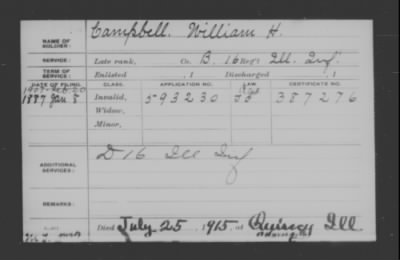 NAME OF SOLDIER: Campbell. William H.
SERVICE: Late rank, Co. B, 16 Reg't Ill. Inf.
TERM OF SERVICE: Enlisted , 1 Discharged , 1
DATE OF FILING. CLASS. APPLICATION NO. LAW. CERTIFICATE NO.
1887 Jan 8 Invalid, 593230 387276
Widow,
Minor,
ADDITIONAL SERVICES: D 16 Ill Inf
REMARKS:
Died July 25, 1915, at Quincy Ill.